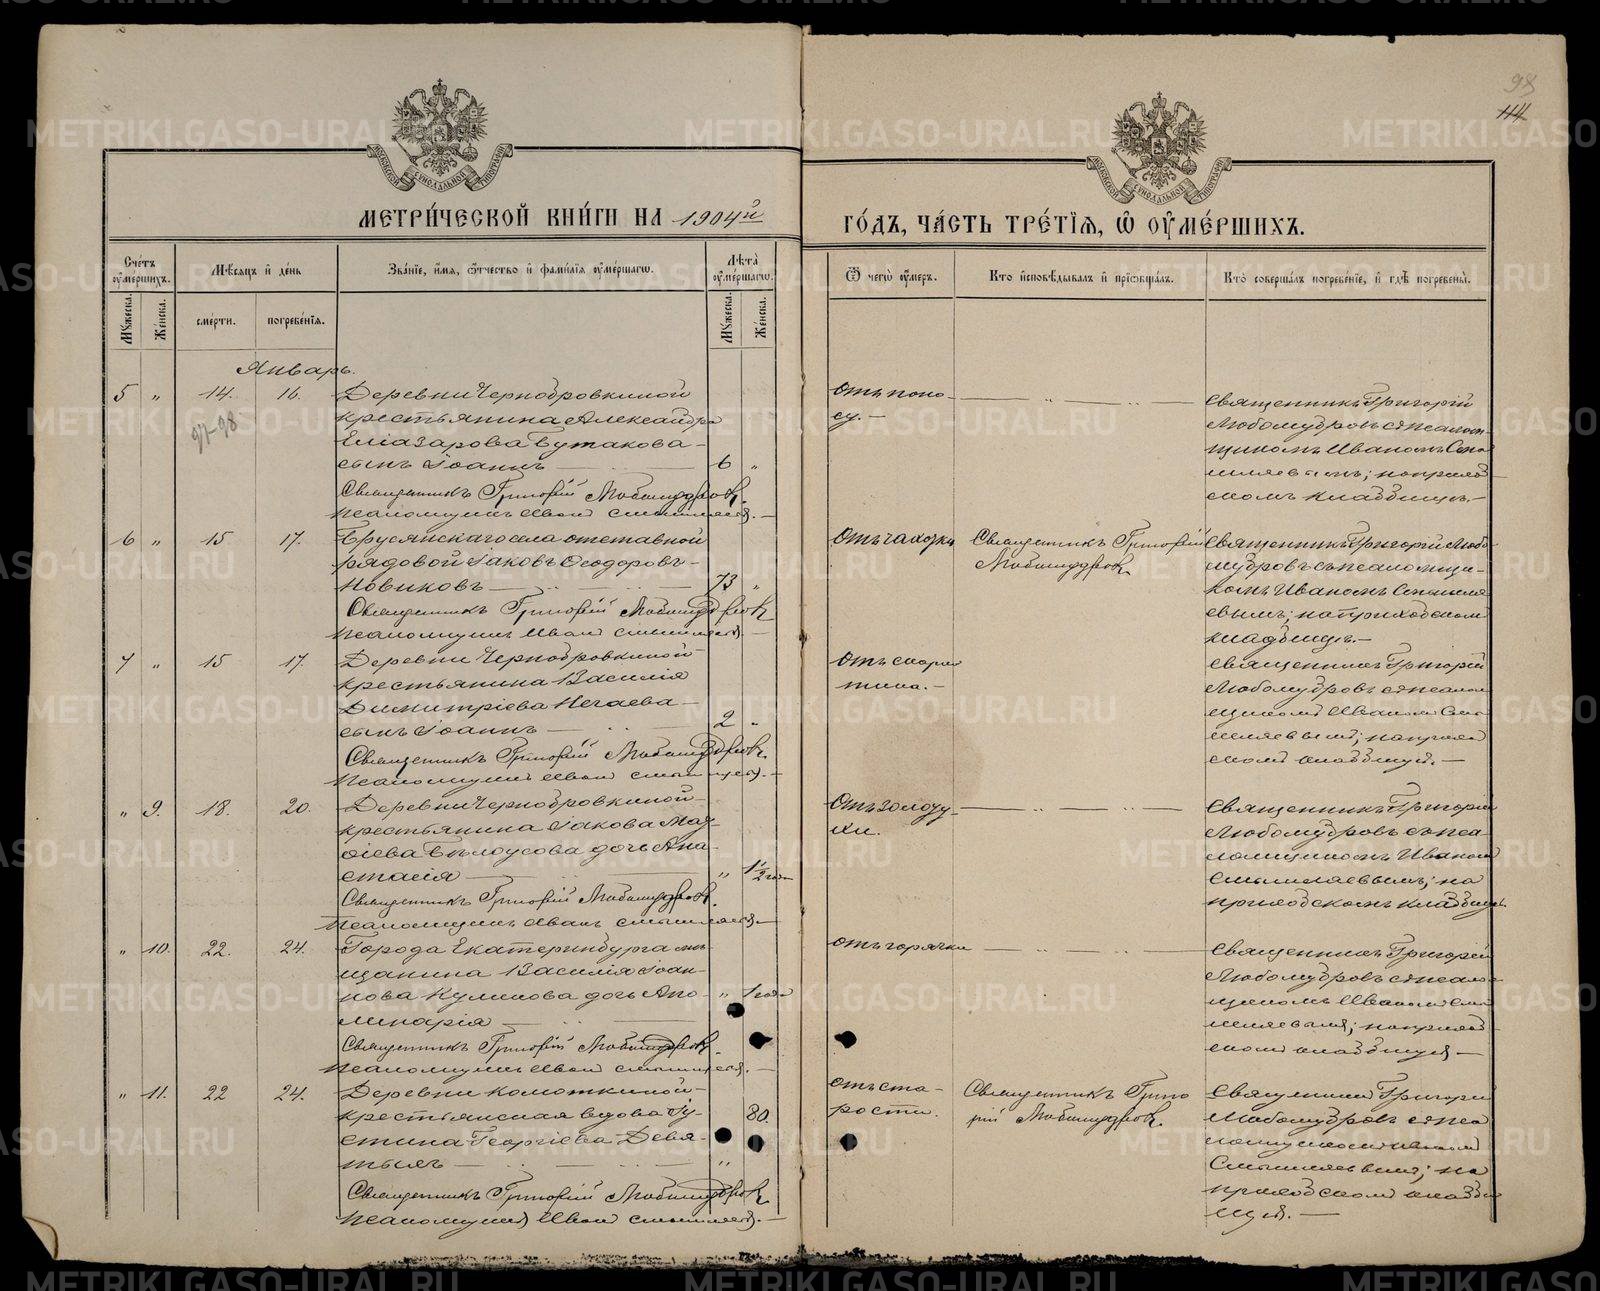 98
114
МОСКОВСКОЙ СѴНОДАЛЬНОЙ ТИПОГРАФІИ
МОСКОВСКОЙ СѴНОДАЛЬНОЙ ТИПОГРАФІИ
МЕТРИ́ЧЕСКОЙ КНИ́ГИ НА 1904й
ГО́ДЪ, ЧА́СТЬ ТРЕ́ТІѦ, Ѡ҆ ОУ҆МЕ́РШИХЪ.
Сче́тъ оу҆ме́ршихъ.
Мѣ́сѧцъ и҆ де́нь
Зва́нїе, и҆́мѧ, ѻ҆́тчество и҆ фами́лїѧ оу҆ме́ршагѡ.
Лѣ́та оу҆ме́ршагѡ.
Ѿ чегѡ̀ оу҆́меръ.
Кто̀ и҆сповѣ́дывалъ и҆ прїѡбща́лъ.
Кто̀ соверша́лъ погребе́нїе, и҆ гдѣ̀ погребены̀.
Мꙋ́жеска.
Же́нска.
сме́рти.
погребе́нїѧ.
Мꙋ́жеска.
Же́нска.
Январь.
5 „ 14. 16. Деревни Чернобровкиной
крестьянина Александра
Еліазарова Бутакова
сынъ Іоаннъ 6 „
Священникъ Григорій Любомудровъ.
Псаломщикъ Иванъ Смышляевъ.
Отъ поно-
су.
Священникъ Григорій
Любомудровъ съ псалом-
щикомъ Иваномъ Смы-
шляевымъ; на приход-
скомъ кладбищѣ.
97-98
6 „ 15 17. Брусянскаго села отставной
рядовой Іаковъ Ѳеодоровъ
Новиковъ 73 „
Священникъ Григорій Любомудровъ
Псаломщикъ Иванъ Смышляевъ.
Отъ чахотки
Священникъ Григорій
Любомудровъ.
Священникъ Григорій Любо-
мудровъ съ псаломщи-
комъ Иваномъ Смышля-
евымъ; на приходскомъ
кладбищѣ.
7 „ 15 17. Деревни Чернобровкиной
крестьянина Василія
Димитріева Нечаева
сынъ Іоаннъ 2 „
Священникъ Григорій Любомудровъ.
Псаломщикъ Иванъ Смышляевъ.
Отъ скарла-
тина.
Священникъ Григорій
Любомудровъ съ псалом-
щикомъ Иваномъ Смы-
шляевымъ; на приход-
скомъ кладбищѣ.
„ 9. 18. 20. Деревни Чернобровкиной
крестьянина Іакова Мат-
ѳіева Бѣлоусова дочь Ана-
стасія „ 1½ года
Священникъ Григорій Любомудровъ.
Псаломщикъ Иванъ Смышляевъ
Отъ золоту-
хи.
Священникъ Григорій
Любомудровъ съ пса-
ломщикомъ Иваномъ
Смышляевымъ; на
приходскомъ кладбищѣ.
„ 10. 22. 24. Города Екатеринбурга мѣ-
щанина Василія Іоан-
нова Куликова дочь Апо- „ 1 года
линарія
Священникъ Григорій Любомудровъ.
Псаломщикъ Иванъ Смышляевъ.
Отъ горячки
Священникъ Григорій
Любомудровъ съ псалом-
щикомъ Иваномъ Смы-
шляевымъ; на приход-
скомъ кладбищѣ
„ 11. 22 24. Деревни Колоткиной
крестьянская вдова Іу- 80.
стина Георгіева Девя-
тыхъ „
Священникъ Григорій Любомудровъ
Псаломщикъ Иванъ Смышляевъ.
Отъ ста-
рости.
Священникъ Григо-
рій Любомудровъ.
Священникъ Григорій
Любомудровъ съ пса-
ломщикомъ Иваномъ
Смышляевымъ; на
приходскомъ кладби-
щѣ.
METRIKI.GASO-URAL.RU